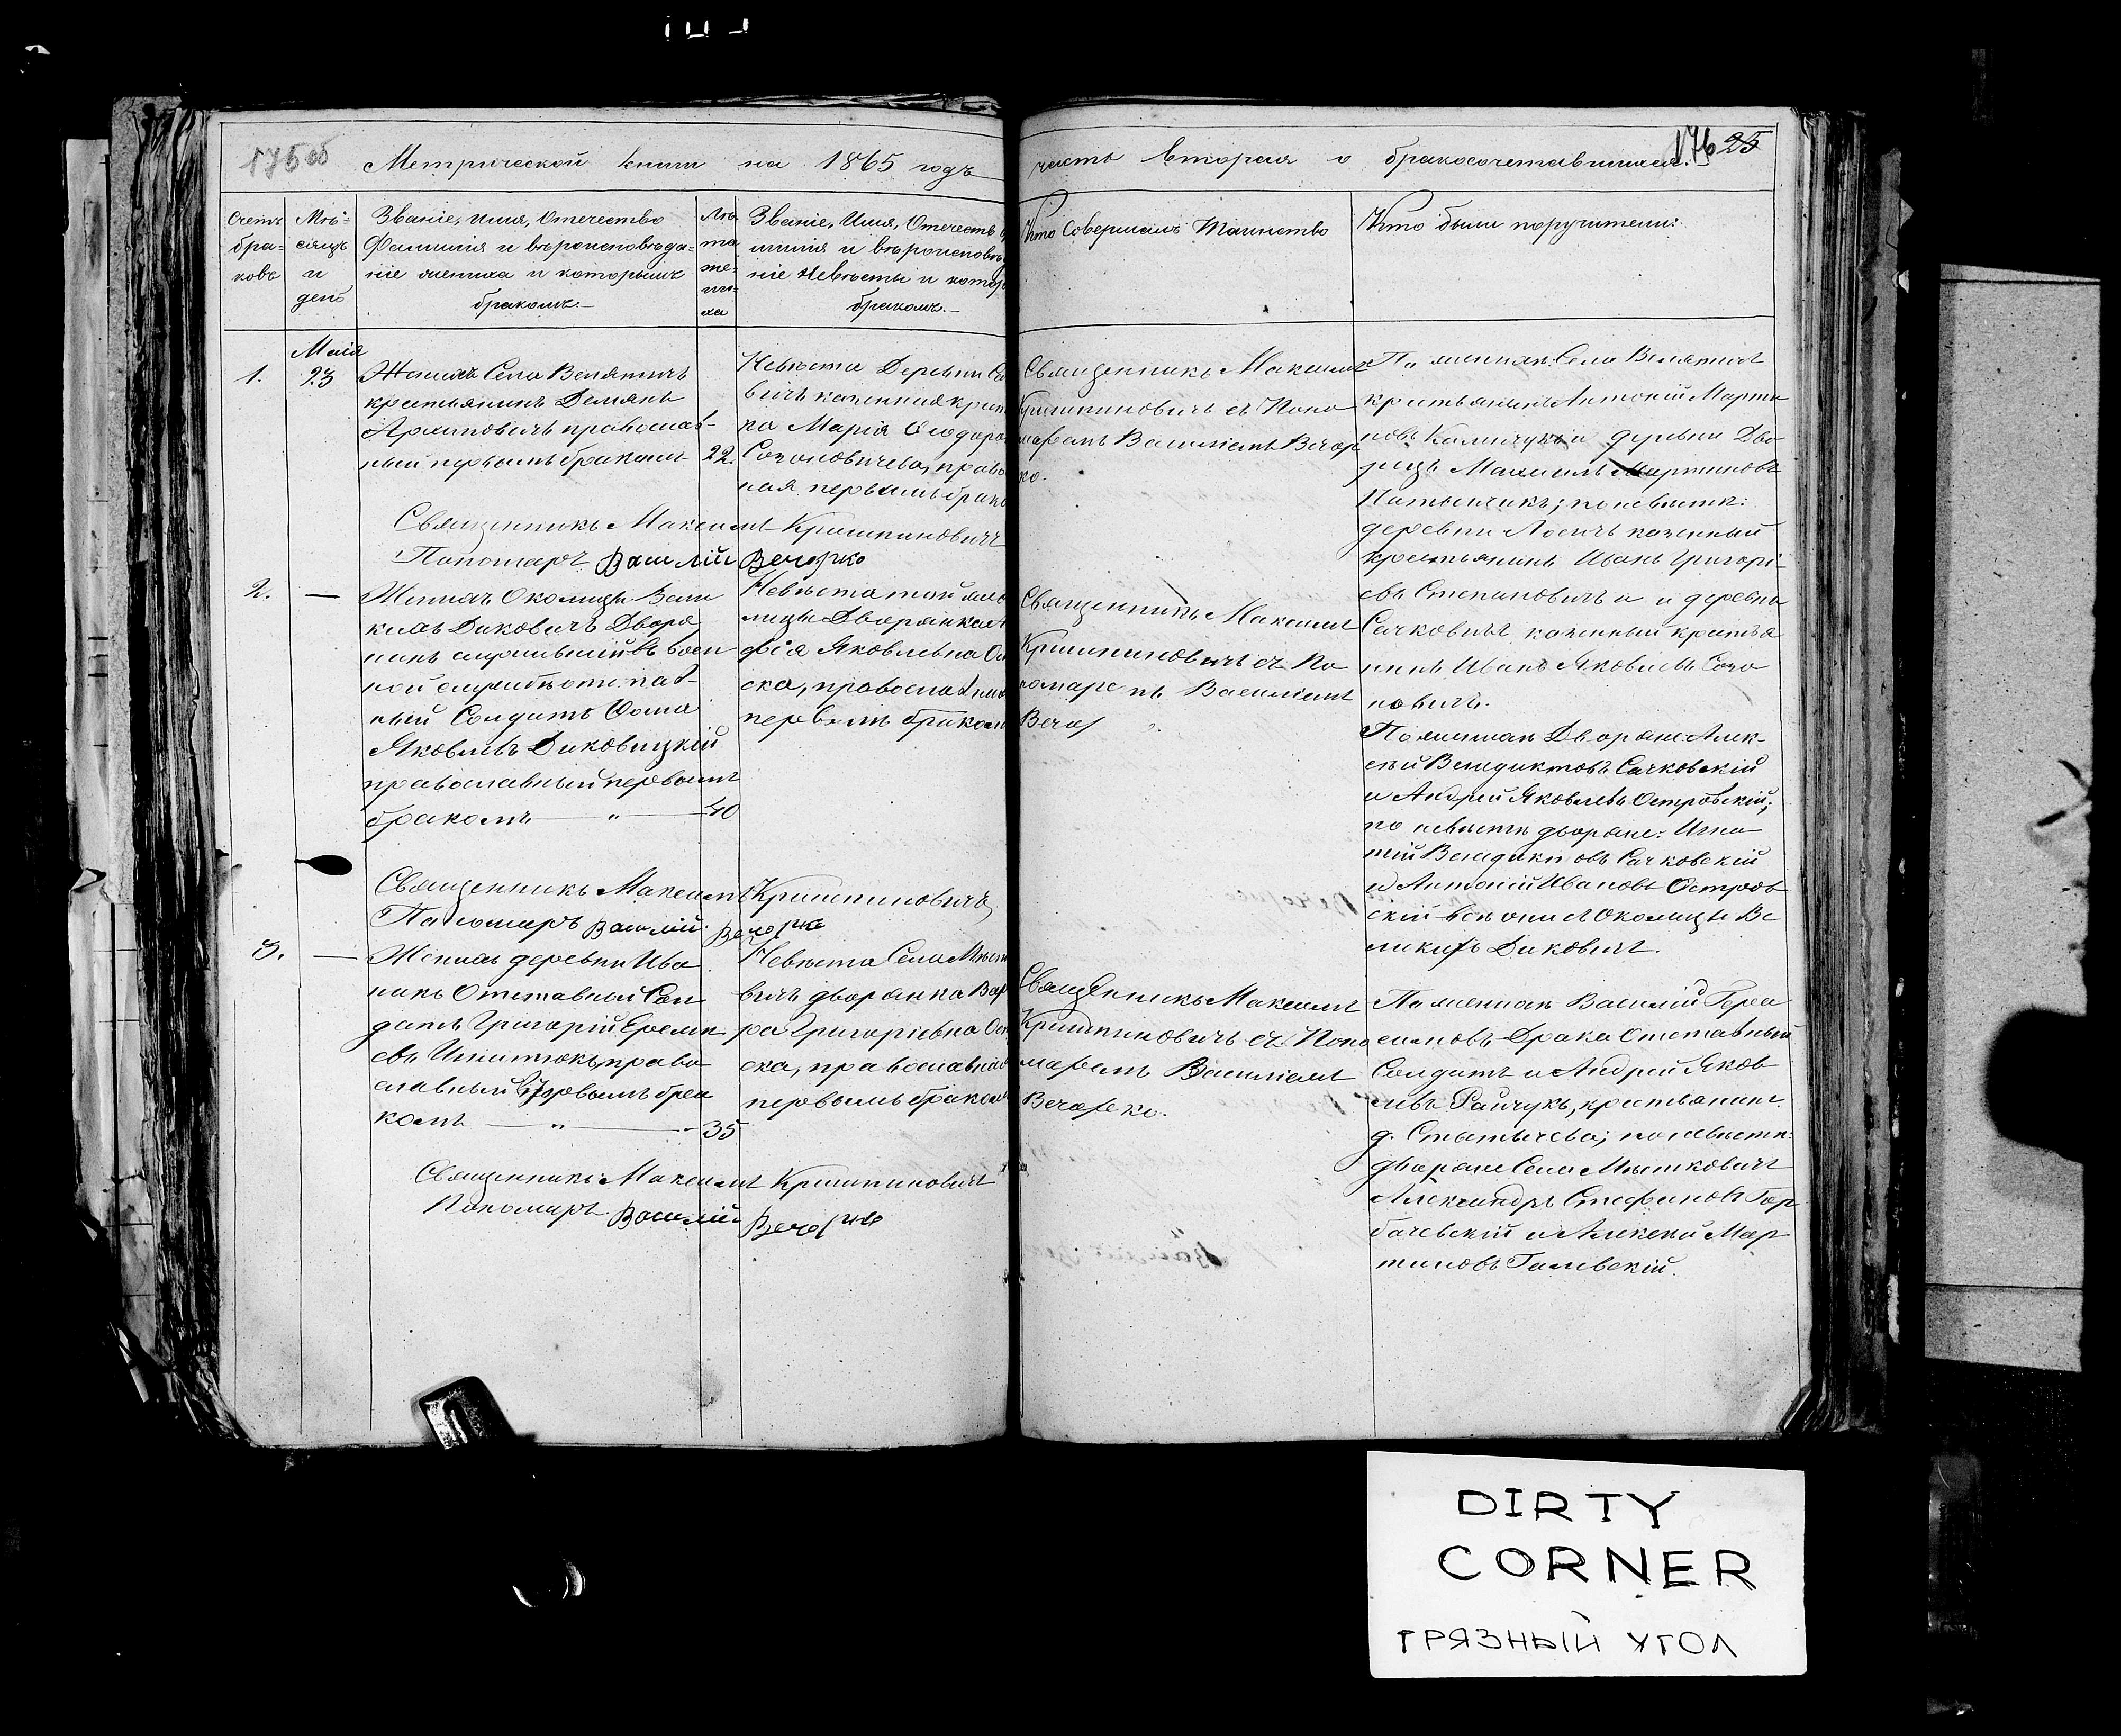 175 об
Метрической книги на 1865 годъ
часть вторая о бракосочетавшихся.
176 25
Счетъ
бра=
ковъ
Мѣ=
сяцъ
и
день
Званіе, имя, Отечество
Фамилія и вѣроисповѣда=
ніе жениха и которымъ
бракомъ.
Лѣ
та
же=
ни=
ха
Званіе, Имя, Отечеств
милія и вѣроисповѣ
ніе Невѣсты и котор
бракомъ.
Кто Совершалъ Таинство
Кто были поручители:
1.
Маія
23
Женихъ Села Велятичь
крестьянинъ Демянъ
Архиповичъ православ-
ный первымъ бракомъ
22.
Невѣста Деревни Са
вичъ казенная крест
ка Марія Ѳеодоро
Сохоновичева, право
ная первымъ брако
Священникъ Максимъ
Кришпиновичъ съ Поно
маремъ Василіемъ Вечор
ко.
По женихѣ: Села Велятичь
крестьянинъ Антоній Марти
новъ и деревни Дво
рецъ Мартиновъ
по невѣстѣ:
деревни Лосичъ казенный
крестьянинъ Иванъ Григорі-
евъ Степановичъ и деревни
Сачковичъ казенный крестья
нинъ Иванъ Яковлевъ Сохо
новичъ.
Священникъ Максимъ Кришпиновичъ
Пономарь Василій Вечорко
2.
—
Женихъ Околицы Вели
кихъ Диковичъ Дворя
нинъ служившій въ воен
ной службѣ отстав-
ный Солдатъ Ѳома
Яковлевъ Диковицкій
православный первымъ
бракомъ — „ — 40
Невѣста той же око
лицы Дворянка
фія Яковлевна Ос
ска, православная
первымъ бракомъ
Священникъ Максимъ
Кришпиновичъ съ По
номаремъ Василіемъ
Вечор
По женихѣ Дворяне: Алек-
сѣй Венедиктовъ Сачковскій
и Андрей Яковлевъ Островскій;
по невѣстѣ дворяне: Игна
тій Венедиктовъ Сачковскій
и Антоній Ивановъ Островъ
скій всѣ они Околицы Ве
ликихъ Диковичъ.
Священникъ Максимъ Кришпиновичъ
Пономарь Василій Вечорко
3.
—
Женихъ деревни Ива
никъ Отставный Сол
датъ Григорій Ереме
евъ Игнатюкъ, право
славный первымъ бра
комъ — „ — 35
Невѣста Села Мѣст
вичъ дворянка Вар
ра Григоріевна Ос
ска, православная
первымъ бракомъ
Священникъ Максимъ
Кришпиновичъ съ Поно
маремъ Василіемъ
Вечорко.
По женихѣ Василій Гера
симовъ Драка Отставный
Солдатъ и Андрей Яков
левъ Райчукъ, крестьянинъ
д. Стытычева; по невѣстѣ:
дворяне Села Мѣстковичъ
Александръ Стефановъ Гор
бачевскій и Алексѣй Мар
тиновъ Галевскій.
Священникъ Максимъ Кришпиновичъ
Пономарь Василій Вечорко
DIRTY
CORNER
ГРЯЗНЫЙ УГОЛ